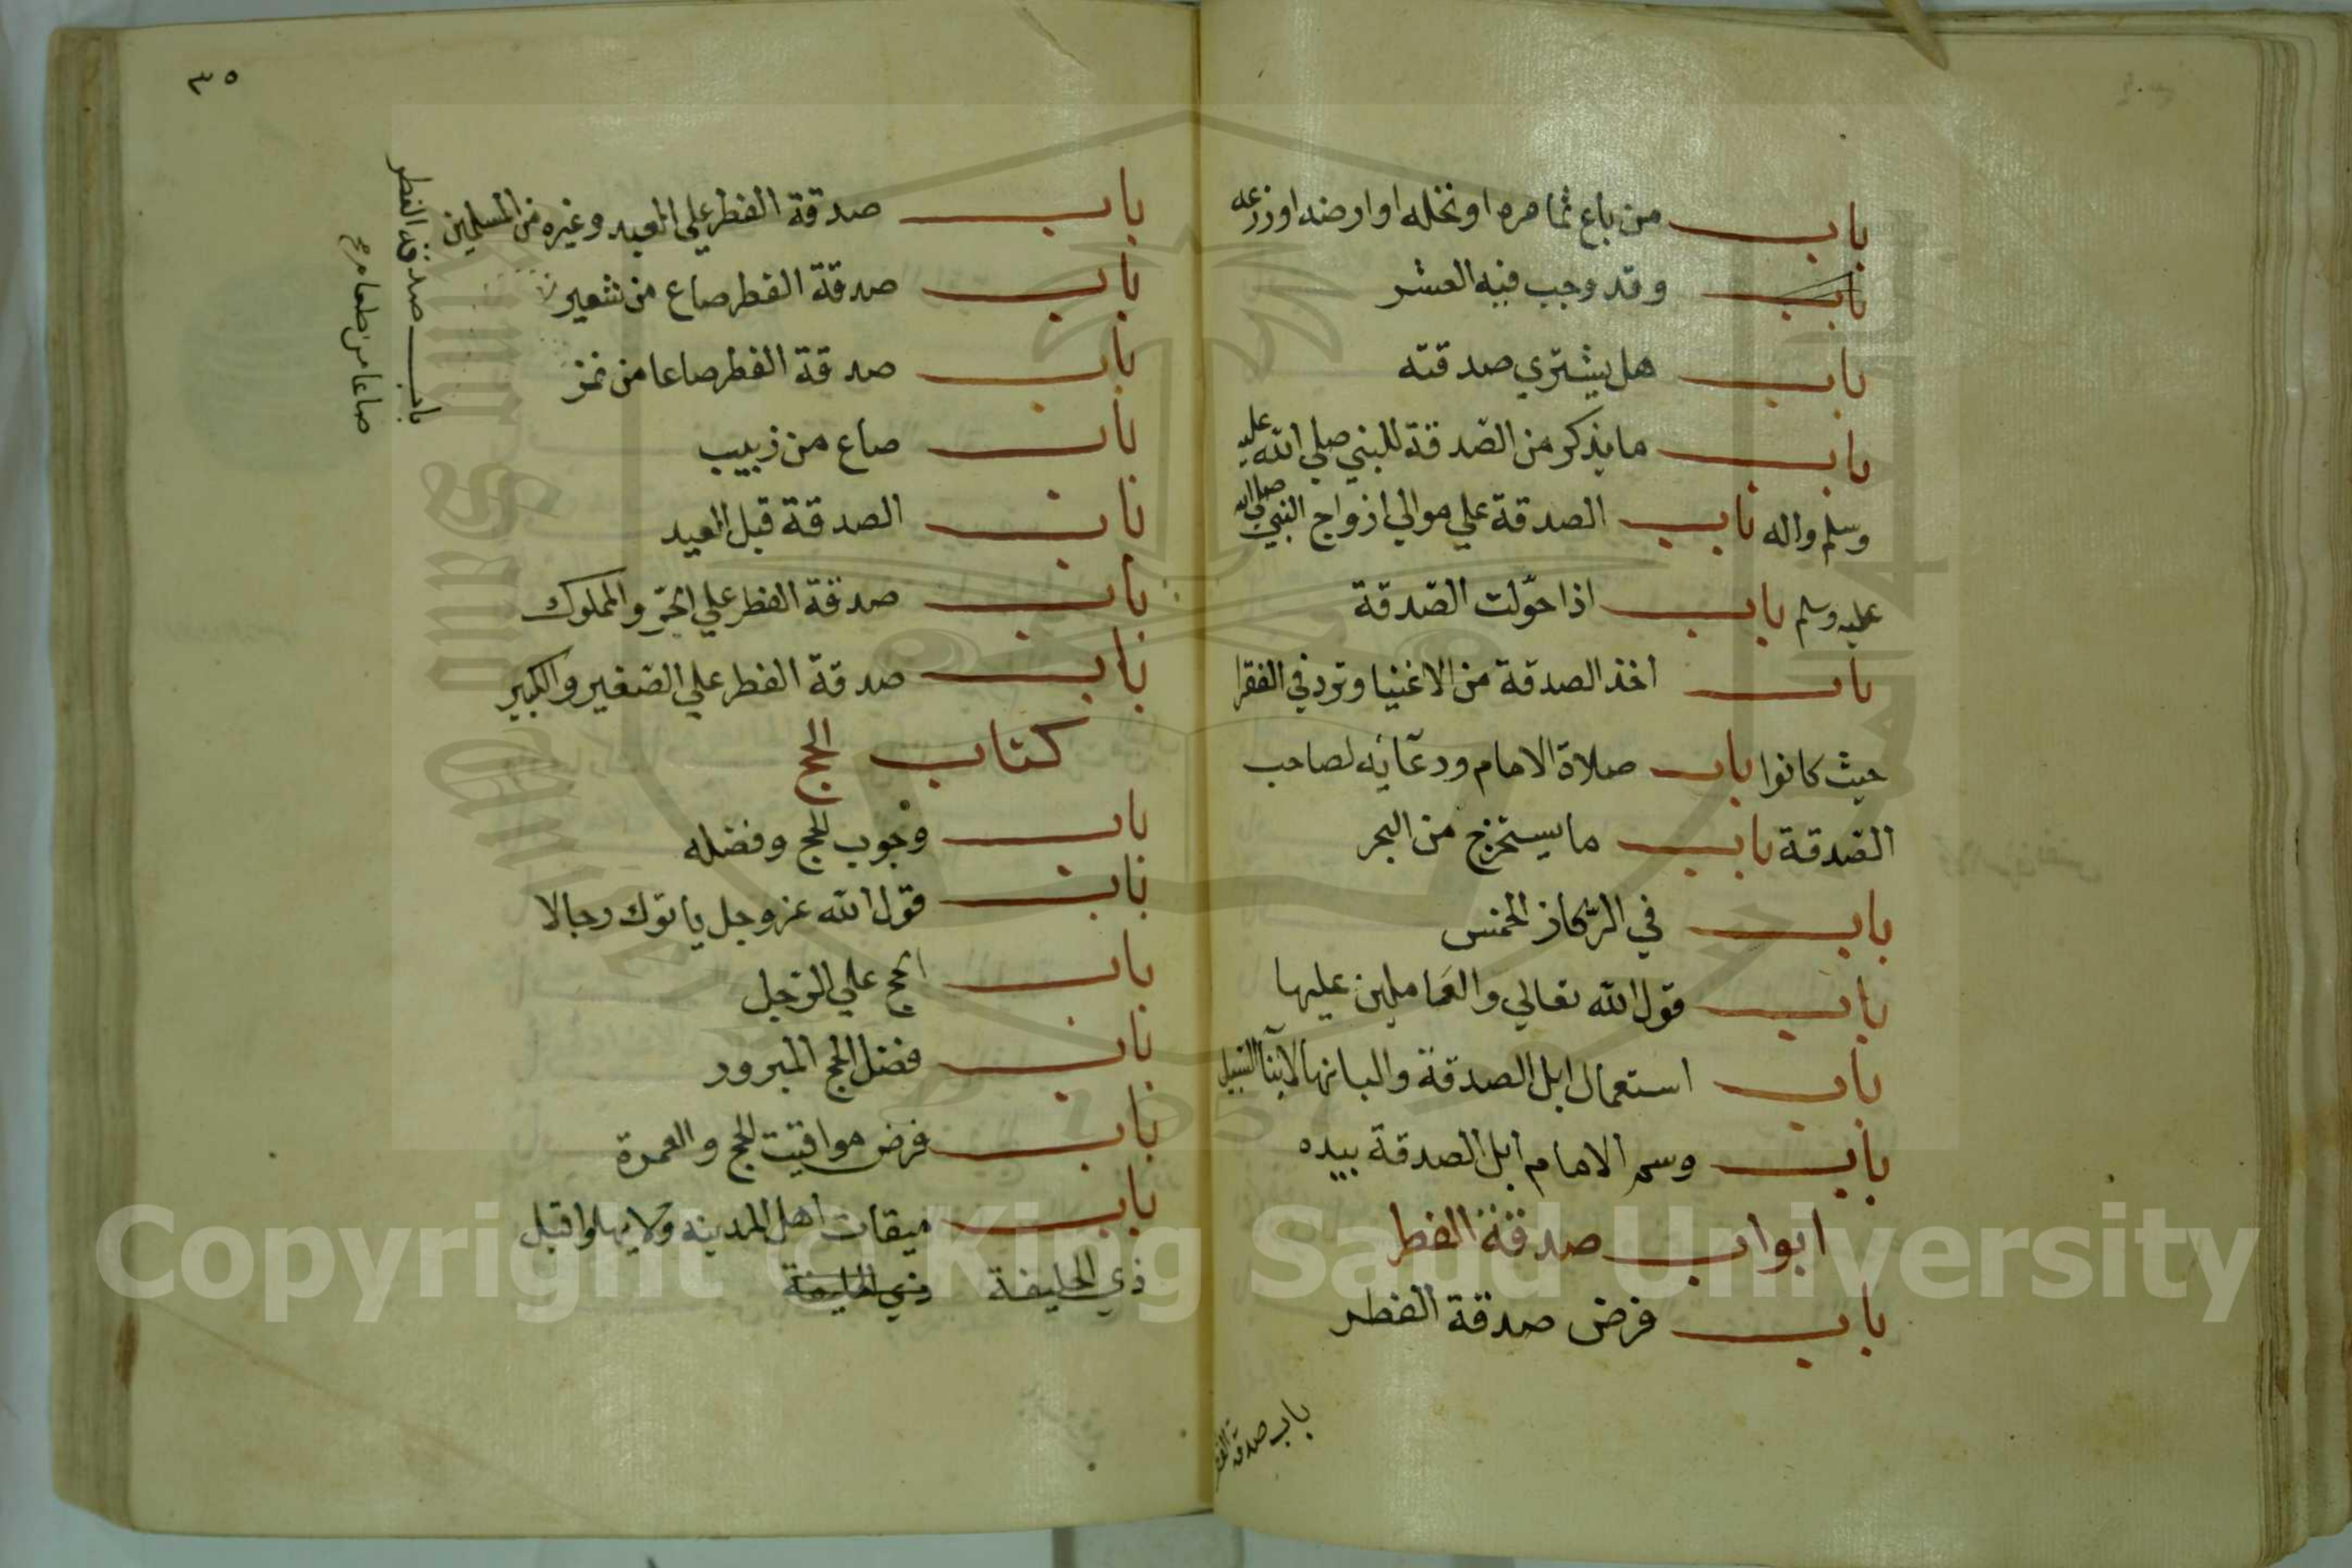 باب من باع ثماره او نخله او ارضه او زرعه
باب وقد وجب فيه العشر
باب هل يشتري صدقته
باب ما يذكر من الصدقة للنبي صلي الله عليه
وسلم واله باب الصدقة علي موالي ازواج النبي صلي الله
عليه وسلم باب اذا حوّلت الصّدقة
باب اخذ الصدقة من الاغنيا وترد في الفقرا
حيث كانوا باب صلاة الامام ودعائه لصاحب
الصّدقة باب ما يستخرج من البحر
باب في الرّكاز الخمس
باب قول الله تعالي والعاملين عليها
باب استعمال ابل الصدقة والبانها لابناء السبيل
باب وسم الامام ابل الصدقة بيده
ابواب صدقة الفطر
باب فرض صدقة الفطر
باب صدقة الفطر
٣٥
باب صدقة الفطر علي العبد وغيره من المسلمين
باب صدقة الفطر صاع من شعير
باب صدقة الفطر
صاعا من طعام صح
باب صدقة الفطر صاعا من تمر
باب صاع من زبيب
باب الصدقة قبل العيد
باب صدقة الفطر علي الحرّ والمملوك
باب صدقة الفطر علي الصغير والكبير
كتاب الحج
باب وجوب الحج وفضله
باب قول الله عز وجل ياتوك رجالا
باب الحج علي الرحل
باب فضل الحج المبرور
باب فرض مواقيت الحج والعمرة
باب ميقات اهل المدينه ولا يهلوا قبل
ذي الحليفة ذي الحليفة
Copyright © King Saud University